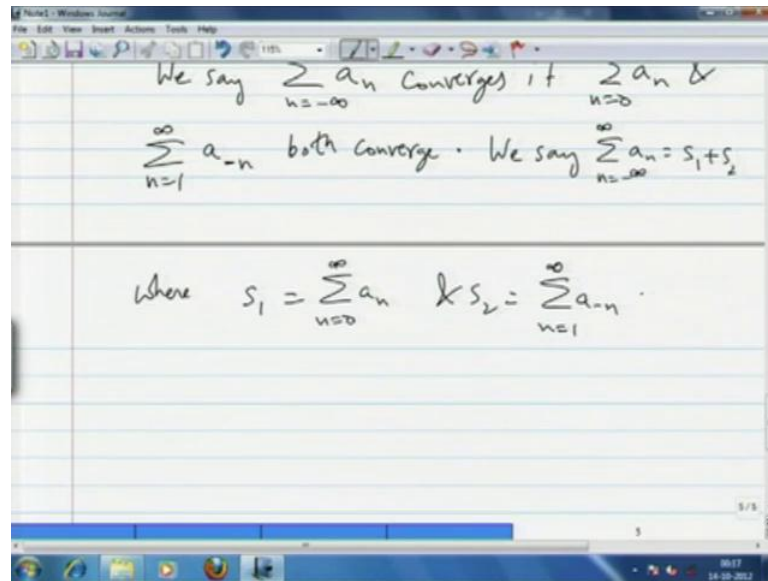 Note1 - Windows Journal
File Edit View Insert Actions Tools Help
115%
We say ∑_{n=-∞} a_n Converges if ∑_{n=0} a_n &
∑_{n=1}^{∞} a_{-n} both converge. We say ∑_{n=-∞}^{∞} a_n = s_1 + s_2
where s_1 = ∑_{n=0}^{∞} a_n & s_2 = ∑_{n=1}^{∞} a_{-n}.
5/5
5
00:17
14-10-2012